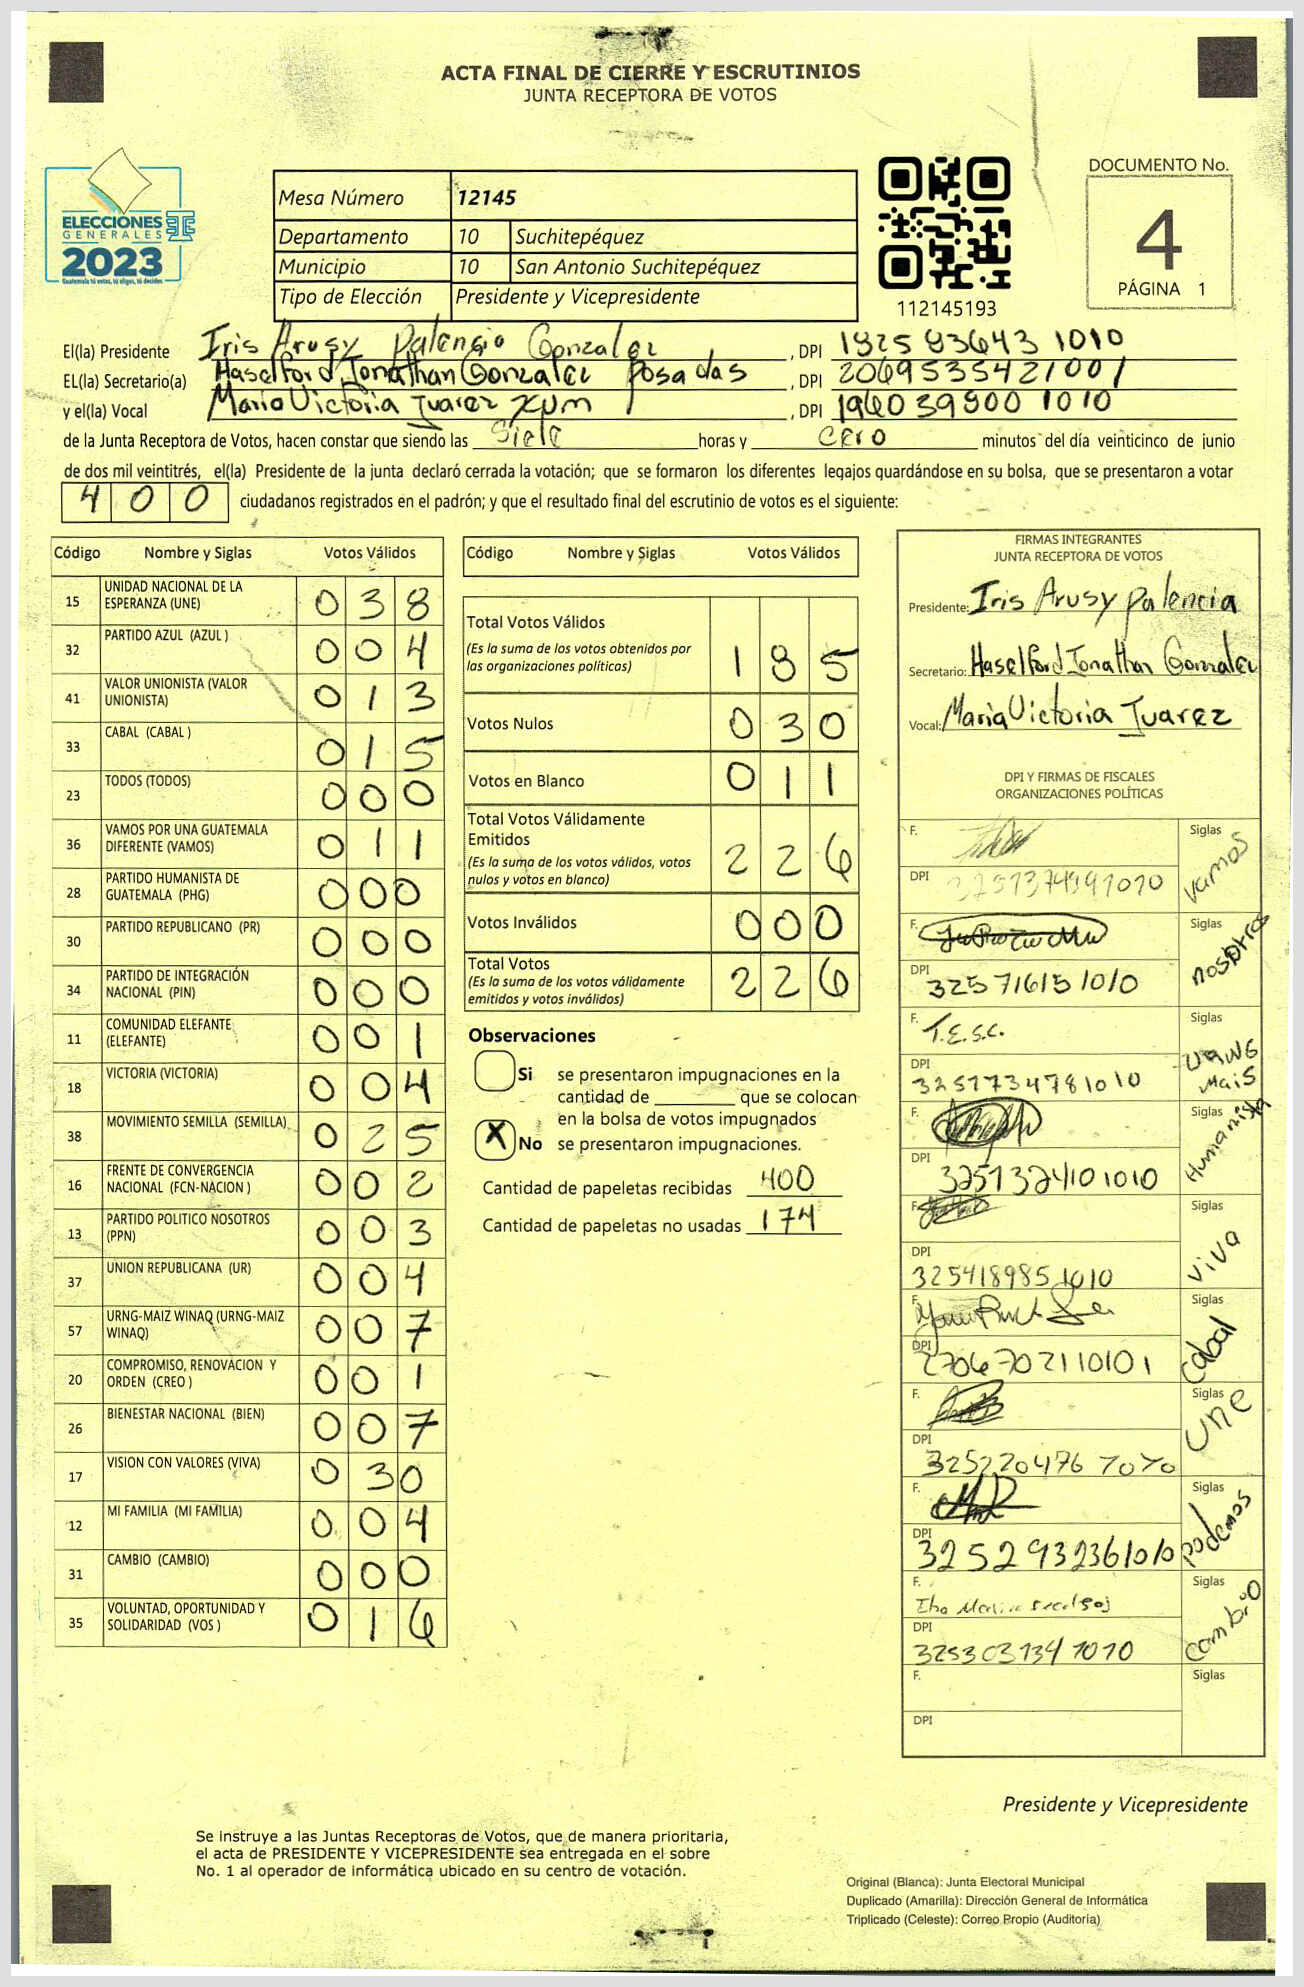 ACTA FINAL DE CIERRE Y ESCRUTINIOS
JUNTA RECEPTORA DE VOTOS
ELECCIONES
GENERALES
2023
Guatemala tú votas, tú eliges, tú decides
Mesa Número 12145
Departamento 10 Suchitepéquez
Municipio 10 San Antonio Suchitepéquez
Tipo de Elección Presidente y Vicepresidente
112145193
DOCUMENTO No.
4
PÁGINA 1
El(la) Presidente Iris Arusy Palencia Gonzalez, DPI 1825 83643 1010
EL(la) Secretario(a) Haselford Jonathan Gonzalez Posadas, DPI 2069535421001
y el(la) Vocal Maria Victoria Juarez Xum, DPI 196039800 1010
de la Junta Receptora de Votos, hacen constar que siendo las Siete horas y cero minutos del día veinticinco de junio
de dos mil veintitrés, el(la) Presidente de la junta declaró cerrada la votación; que se formaron los diferentes legajos quardándose en su bolsa, que se presentaron a votar
400 ciudadanos registrados en el padrón; y que el resultado final del escrutinio de votos es el siguiente:
Código Nombre y Siglas Votos Válidos
15 UNIDAD NACIONAL DE LA ESPERANZA (UNE) 038
32 PARTIDO AZUL (AZUL ) 004
41 VALOR UNIONISTA (VALOR UNIONISTA) 013
33 CABAL (CABAL ) 015
23 TODOS (TODOS) 000
36 VAMOS POR UNA GUATEMALA DIFERENTE (VAMOS) 011
28 PARTIDO HUMANISTA DE GUATEMALA (PHG) 000
30 PARTIDO REPUBLICANO (PR) 000
34 PARTIDO DE INTEGRACIÓN NACIONAL (PIN) 000
11 COMUNIDAD ELEFANTE (ELEFANTE) 001
18 VICTORIA (VICTORIA) 004
38 MOVIMIENTO SEMILLA (SEMILLA) 025
16 FRENTE DE CONVERGENCIA NACIONAL (FCN-NACION ) 002
13 PARTIDO POLITICO NOSOTROS (PPN) 003
37 UNION REPUBLICANA (UR) 004
57 URNG-MAIZ WINAQ (URNG-MAIZ WINAQ) 007
20 COMPROMISO, RENOVACION Y ORDEN (CREO ) 001
26 BIENESTAR NACIONAL (BIEN) 007
17 VISION CON VALORES (VIVA) 030
12 MI FAMILIA (MI FAMILIA) 004
31 CAMBIO (CAMBIO) 000
35 VOLUNTAD, OPORTUNIDAD Y SOLIDARIDAD (VOS ) 016
Código Nombre y Siglas Votos Válidos
Total Votos Válidos 185
(Es la suma de los votos obtenidos por
las organizaciones políticas)
Votos Nulos 030
Votos en Blanco 011
Total Votos Válidamente
Emitidos 226
(Es la suma de los votos válidos, votos
nulos y votos en blanco)
Votos Inválidos 000
Total Votos 226
(Es la suma de los votos válidamente
emitidos y votos inválidos)
Observaciones
Si se presentaron impugnaciones en la
cantidad de ________ que se colocan
en la bolsa de votos impugnados
X No se presentaron impugnaciones.
Cantidad de papeletas recibidas 400
Cantidad de papeletas no usadas 174
FIRMAS INTEGRANTES
JUNTA RECEPTORA DE VOTOS
Presidente: Iris Arusy Palencia
Secretario: Haselford Jonathan Gonzalez
Vocal: Maria Victoria Juarez
DPI Y FIRMAS DE FISCALES
ORGANIZACIONES POLÍTICAS
F. Siglas vamos
DPI
F. Siglas nosotros
DPI 325716151010
F. T.E.S.C. Siglas
DPI 3251734781010
F. Siglas Humanista
DPI 3251324101010
F. Siglas viva
DPI 3254189851010
F. Siglas cabal
DPI 2706702110101
F. Siglas UNE
DPI 325220476 1010
F. Siglas podemos
DPI 3252932361010
F. Siglas cambio
DPI 3253031341010
F. Siglas
DPI
Presidente y Vicepresidente
Se instruye a las Juntas Receptoras de Votos, que de manera prioritaria,
el acta de PRESIDENTE Y VICEPRESIDENTE sea entregada en el sobre
No. 1 al operador de informática ubicado en su centro de votación.
Original (Blanca): Junta Electoral Municipal
Duplicado (Amarilla): Dirección General de Informática
Triplicado (Celeste): Correo Propio (Auditoria)